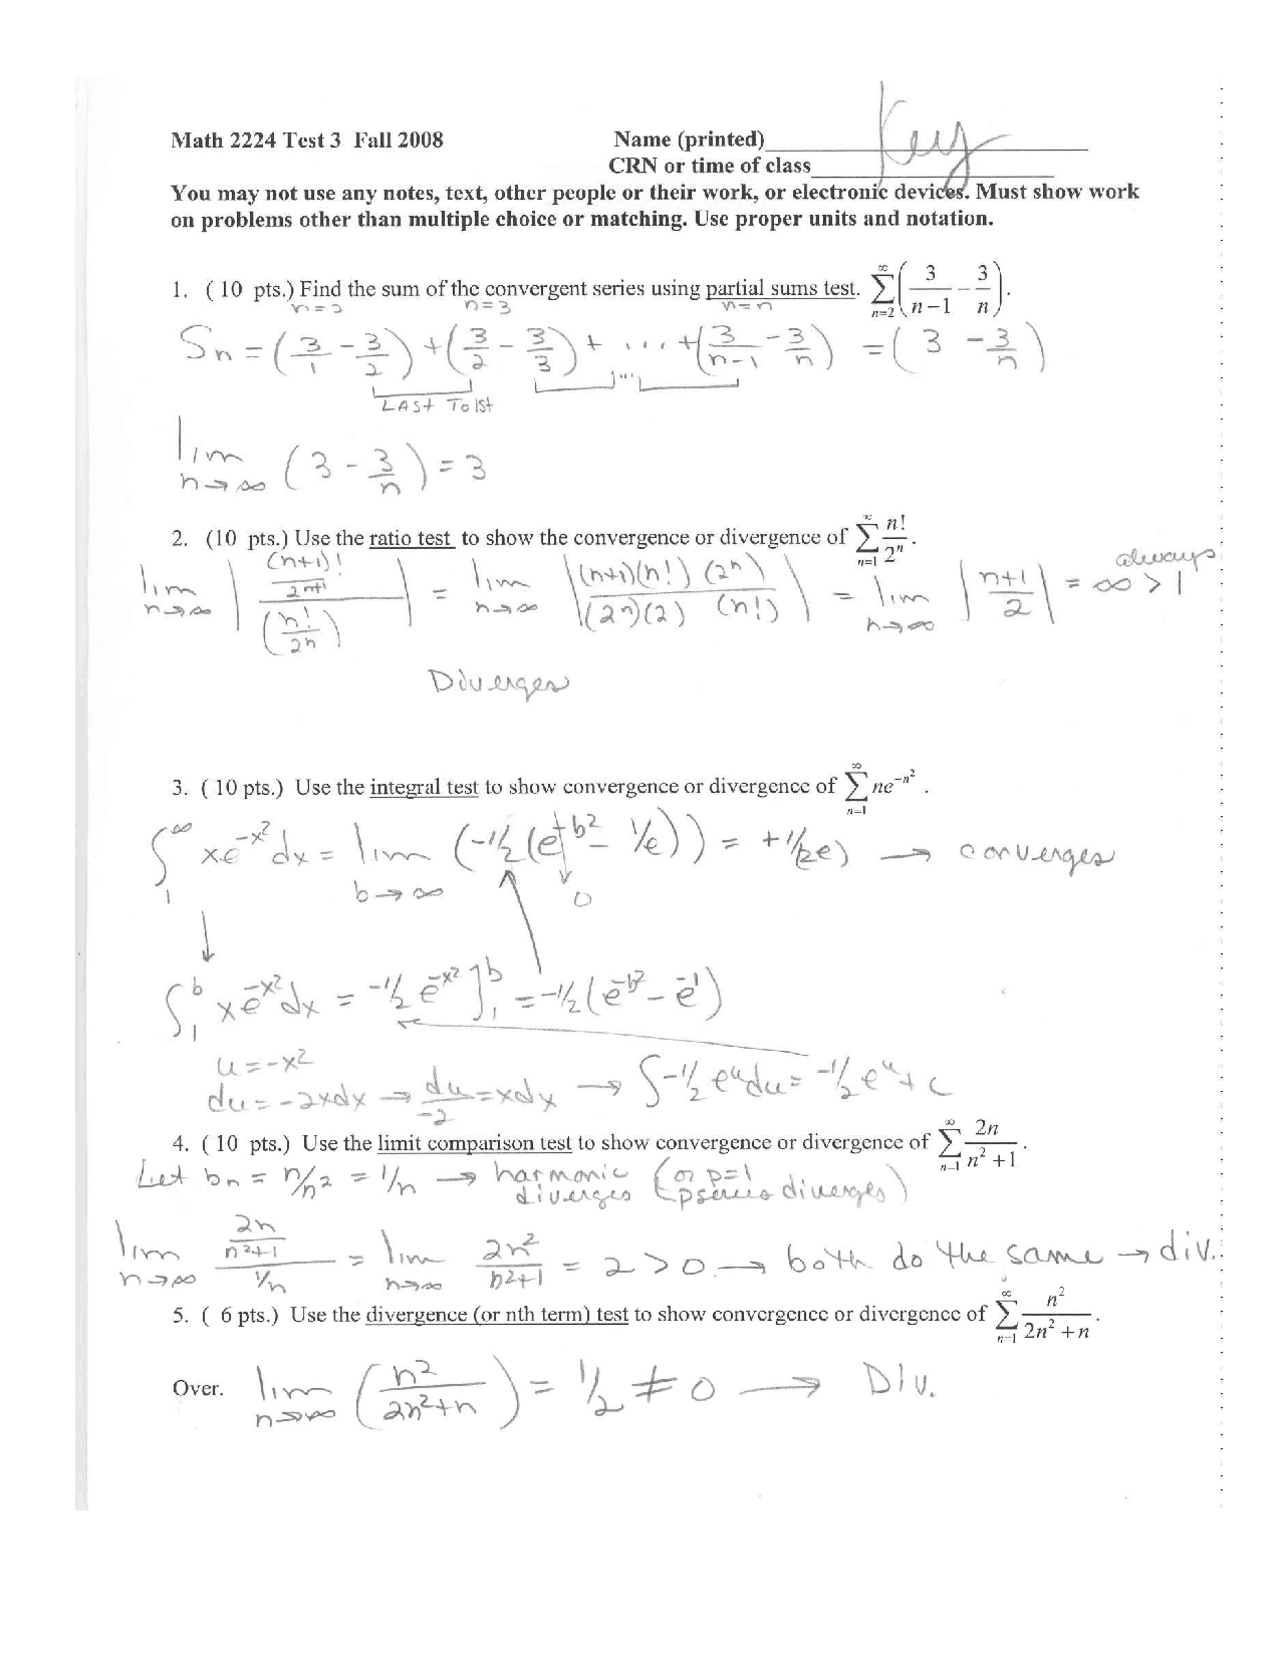 Math 2224 Test 3 Fall 2008 Name (printed) Key
CRN or time of class
You may not use any notes, text, other people or their work, or electronic devices. Must show work
on problems other than multiple choice or matching. Use proper units and notation.
1. ( 10 pts.) Find the sum of the convergent series using partial sums test. ∑_{n=2}^{∞} (3/(n−1) − 3/n).
n=2 n=3 n=n
Sn = (3/1 − 3/2) + (3/2 − 3/3) + ... + (3/(n−1) − 3/n) = (3 − 3/n)
LAst To 1st
...
lim_{n→∞} (3 − 3/n) = 3
2. (10 pts.) Use the ratio test to show the convergence or divergence of ∑_{n=1}^{∞} n!/2^n.
lim_{n→∞} | ((n+1)!/2^{n+1}) / (n!/2^n) | = lim_{n→∞} | (n+1)(n!) (2^n) / (2^n)(2) (n!) | = lim_{n→∞} | (n+1)/2 | = ∞ > 1 always
Diverges
3. ( 10 pts.) Use the integral test to show convergence or divergence of ∑_{n=1}^{∞} ne^{−n²}.
∫_1^∞ xe^{−x²}dx = lim_{b→∞} (−1/2 (e^{−b²} − 1/e)) = +1/(2e) → converges
0
∫_1^b xe^{−x²}dx = −1/2 e^{−x²} ]_1^b = −1/2 (e^{−b²} − e^{−1})
u = −x²
du = −2xdx → du/−2 = xdx → ∫−1/2 e^u du = −1/2 e^u + c
4. ( 10 pts.) Use the limit comparison test to show convergence or divergence of ∑_{n=1}^{∞} 2n/(n²+1).
Let bn = n/n² = 1/n → harmonic diverges (or p=1 pseries diverges)
lim_{n→∞} (2n/(n²+1))/(1/n) = lim_{n→∞} 2n²/(n²+1) = 2 > 0 → both do the same → div.
5. ( 6 pts.) Use the divergence (or nth term) test to show convergence or divergence of ∑_{n=1}^{∞} n²/(2n²+n).
Over. lim_{n→∞} (n²/(2n²+n)) = 1/2 ≠ 0 → Div.